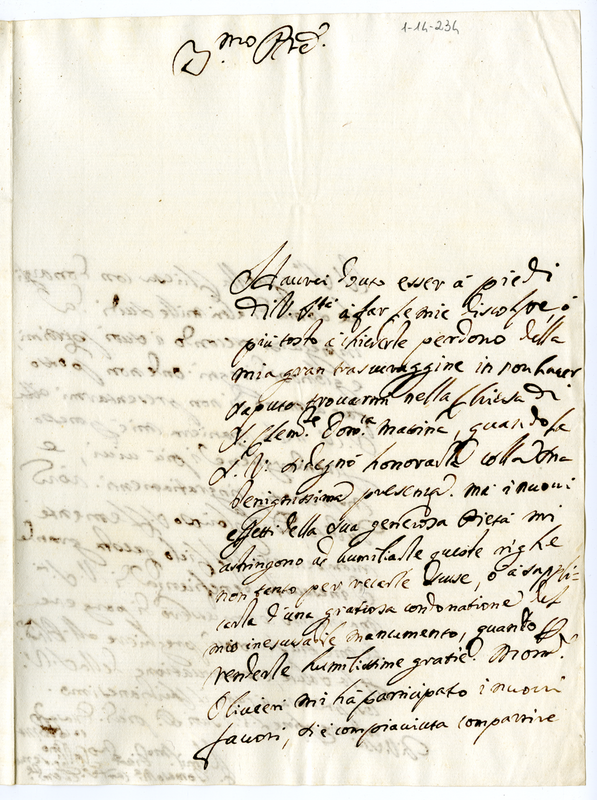 1-14-234
B.mo P̃re.
Haurei douto esser à piedi
di V. S.tà à far le mie discolpe, ò
più tosto à chiederle perdono della
mia gran trascuraggine in non haver
saputo trovarmi nella Chiesa di
S. Clem.te Dom.ca matina, quando la
S. V. si degnò honorarla colla sua
benignissima presenza. Ma i nuovi
effetti della sua generosa Pietà mi
astringono ad humiliarle queste righe
non tanto per recarle scuse, ò à suppli-
carla d'una gratiosa condonatione del
mio inescusabile mancamento, quanto p̃
renderle humilissime gratie. Mons.r
Olivieri mi hà participato i nuovi
favori, si è compiaciuta compartire